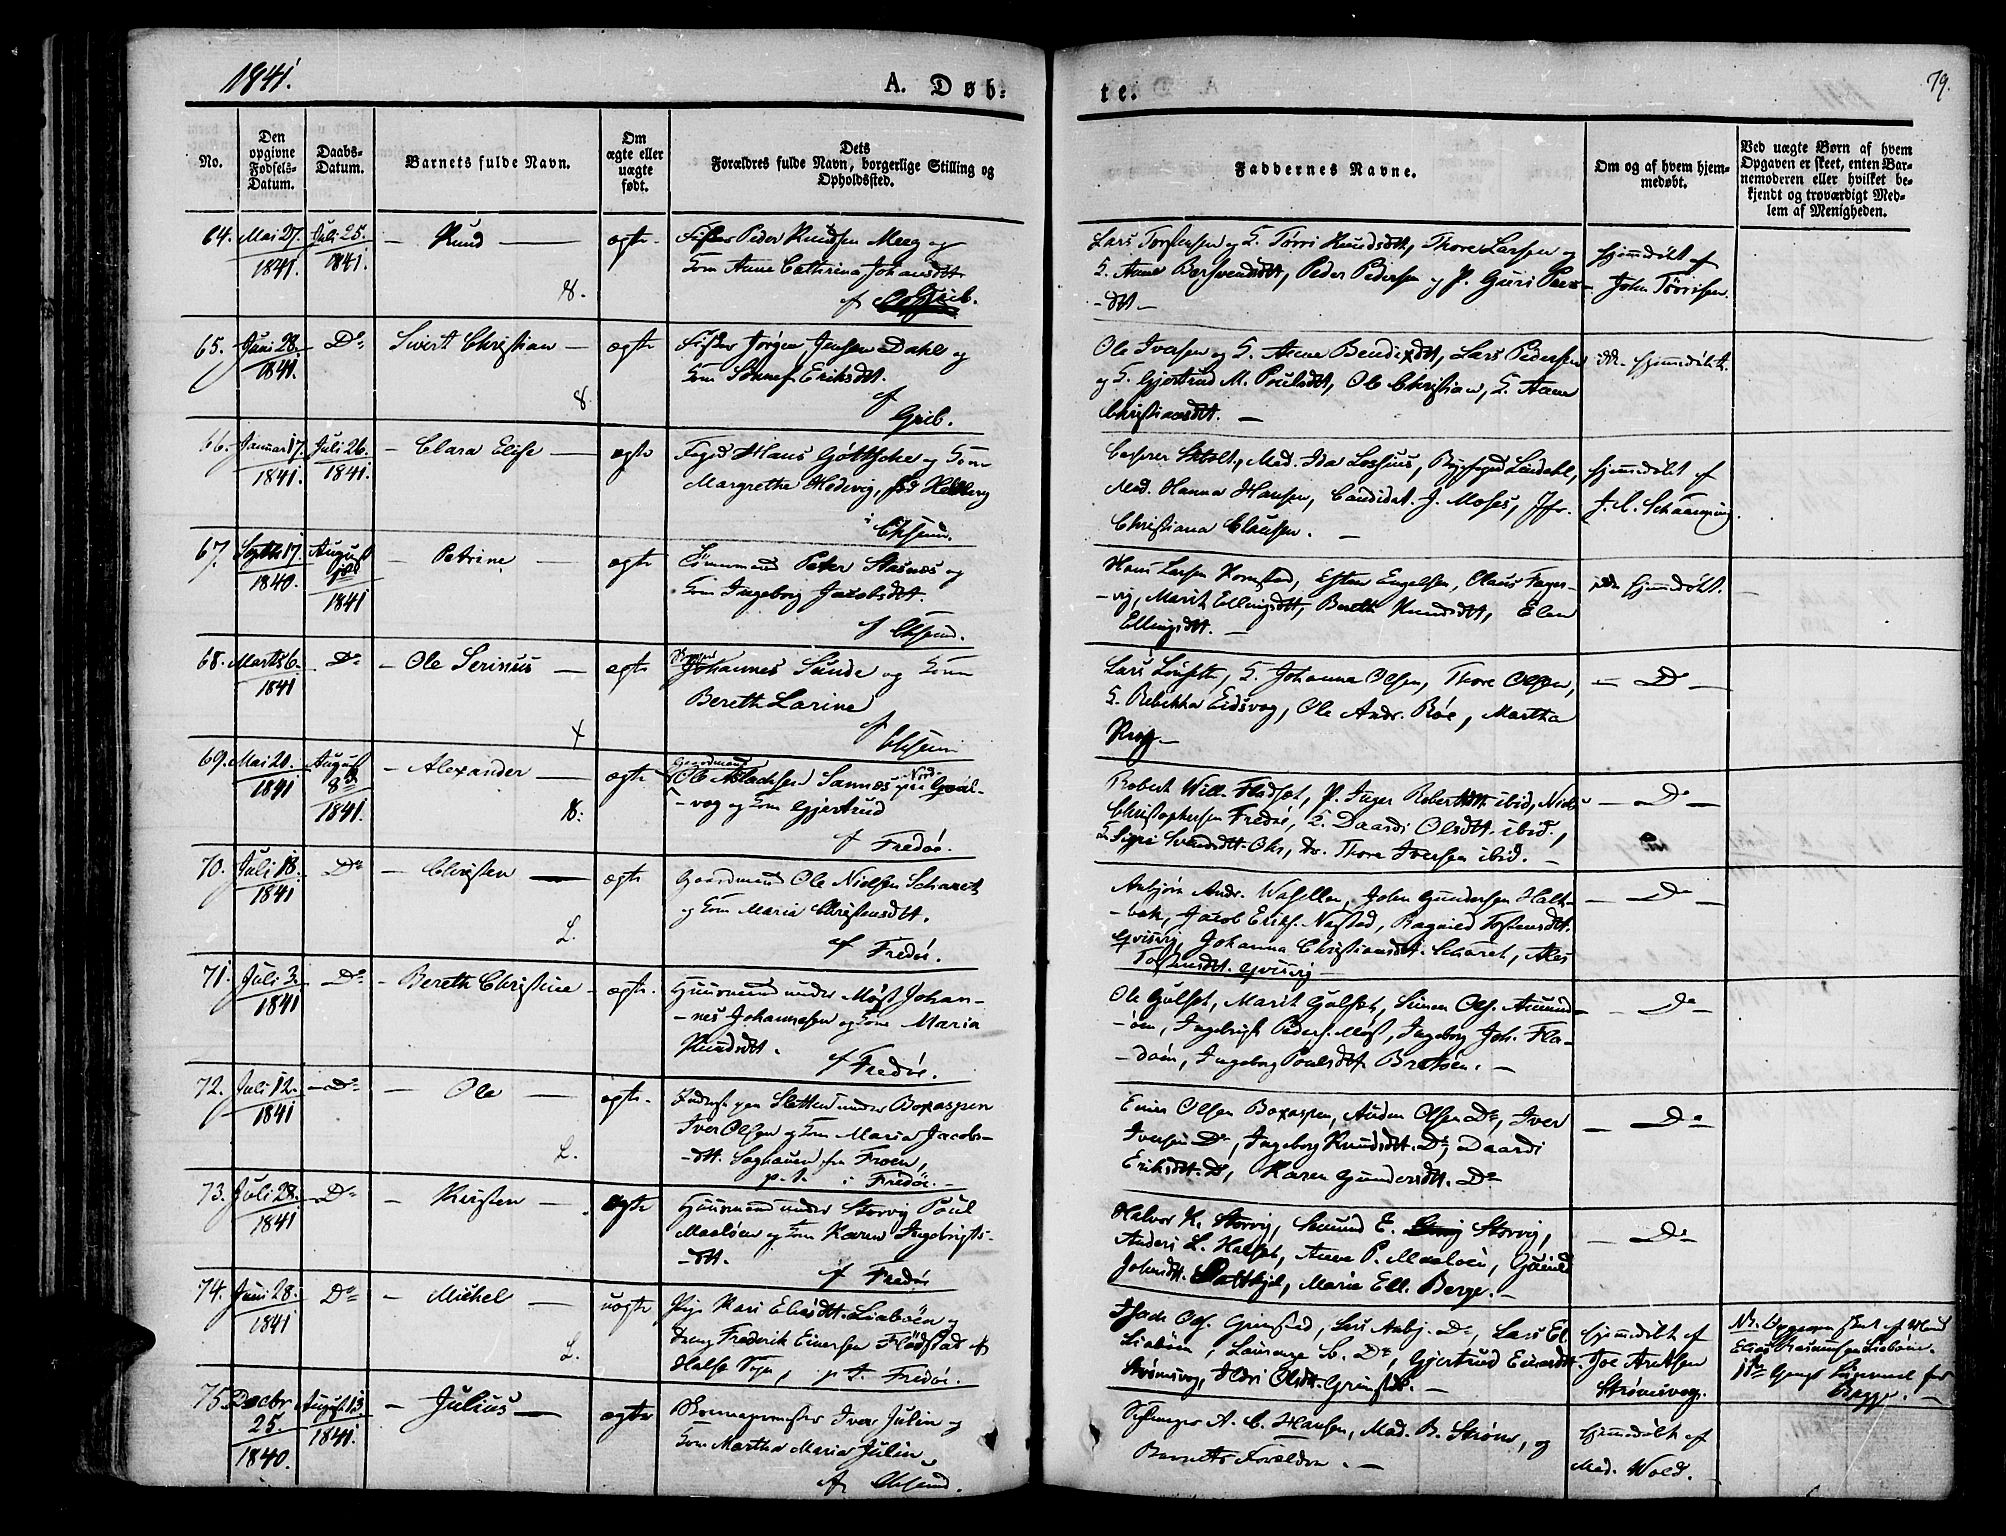 1841.
A. Døb-
te.
79.
No.
Den opgivne Fødsels-Datum.
Daabs-Datum.
Barnets fulde Navn.
Om ægte eller uægte født.
Dets Forældres fulde Navn, borgerlige Stilling og Opholdssted.
Faddernes Navne.
Om og af hvem hjem-medøbt.
Ved uægte Børn af hvem Opgaven er skeet, enten Bar-nemoderen eller hvilket be-kjendt og troværdigt Med-lem af Menigheden.
64. Mai 27. 1841. Juli 25. 1841. – Knud – ægte. Fisker Peder Knudsen Meeg og
Kone Anne Cathrina Johansdtt
af Grib.
8.
Lars Torstensen og K. Tørri Knudsdtt, Thore Larsen og
K. Anne Bersvendsdtt, Peder Pedersen og P. Guri Peers-
-dtt –
Hjemmedøbt af
John Tørrisen.
65. Juni 28. 1841. Do Sivert Christian – ægte Fisker Jørgen Jensen Dahl og
Kone Synnef Eriksdtt.
af
Grib.
8
Ole Iversen og K. Anne Bendixdtt, Lars Pedersen
og K. Gjertrud M. Poulsdtt, Ole Christian, K. Anne
Christiansdtt. –
ikke hjemmedøbt.
66. Januar 17. 1841. Juli 26. 1841. – Clara Elise – ægte Foged Hans Gøttsche og Kone
Margrethe Hedevig, fød
i
Chsund.
Casserer Stolt, Mad. Ida Lossius, Byefoged Lindahl,
Mad. Hanna Hansen, Candidat. J. Moses, Jfr.
Christiana Clausen. –
hjemmedøbt af
J. C. Schaanning.
67. Septb 17 1840. August 1841 – Petrine – ægte Peter Stasnæs og
Kone Ingeborg Jacobsdtt.
af Chsund.
Hans Larsen Kornstad, Esten Engelsen, Olaus Fager-
-vig, Marit Ellingsdtt, Bereth Knudsdtt, Elen
Ellingsdtt. –
ikke hjemmedøbt.
68. Marts 6. 1841 – Do – Ole Serinus – ægte Johannes Sunde og Kone
Bereth Larine
af
Chsund
X
Lars K. Johanna Olsen, Thore Olsen,
K. Rebekka Eidsvog, Ole Andr. Røe, Martha
Krog –
– Do –
69. Mai 20. 1841 August 8de 1841. – Alexander – ægte Gaardmand
Ole Aslachsen Sannæs paa Nord-
-vog og Kone Gjertrud
af Fredøe.
8.
Robert Will. Fladset, P. Inger Robertsdtt ibid, Niels
Christophersen Fredøe, K. Daardi Olsdtt. ibid.,
Thore Iversen ibid. –
– Do –
70. Juli 18. 1841 Do – Christen – ægte Gaardmand Ole Nielsen Scharet
og Kone Maria Christensdtt.
af Fredøe.
L.
Anbjørn Andr. John Gundersen Halt-
-bak, Jacob Eriks. Nastad, Ragnild Tostensdtt.
Qvisvig, Johanna Christiansdtt. Scharet, Ales
Tostensdtt. Qvisvig –
– Do –
71. Juli 3. 1841 – Do – Bereth Christine – ægte. Huusmand under Møst Johan-
-nes Johannesen og Kone Maria
Knudsdtt.
af Fredøe.
Ole Gulset, Marit Gulset, Simen Ols. Amund-
-øen, Ingebrigt Peders. Møst, Ingeborg Joh. Fla-
-døen, Ingeborg Poulsdtt Bretøen. –
– Do –
72. Juli 12. 1841 – Do – Ole ægte. Inderst paa Sletten under Boxaspen
Iver Olsen og Kone Maria Jacobs-
-dtt. fra Froen,
p. t. i Fredøe. –
L.
Einer Olsen Boxaspen, Auden Olsen Do, Iver
Iversen Do, Ingeborg Knudsdtt. Do, Daardi
Eriksdtt. Do, Karen Gundersdtt. Do
– Do
73. Juli 28. 1841 – Do – Kirsten – ægte Huusmand under Storvig Poul
Maaløen og Kone Karen Ingebrigts-
-dtt. af Fredøe
Halvor K. Storvig, Simund E. Storvig,
Anders L. Halset, Anne P. Maaløen, Gunild
Johnsdtt. Maria Ell. Berge. –
– Do –
74. Juni 28. 1841 Do – Michel – uægte Pige Kari Eliasdtt. Liabøen og
Dreng Frederik Einersen Flødstad af
Halse Sogn, p. t. Fredøe.
L.
Ole Grimstad, Lars Anbj. Do, Lars El.
Liabøen, Laurenze S. Do, Gjertrud Einersdtt.
Strømsvog, Ildri Olsdtt. Grimstad. –
hjemmedøbt af
Joe Arntsen
Strømsvog.
Nt. Opgaven skeet af
Elias Rasmussen Liabøen.
1ste Gangs Leiermaal for
Begge. –
75. Decbr 25. 1840. August 13. 1841. – Julius – ægte Iver Julin og
Kone Martha Maria Julin
Af Chsund.
A. C. Hansen, Mad. B. Strøm, og
Barnets Forældre. –
hjemmedøbt af
Mad. Wold.